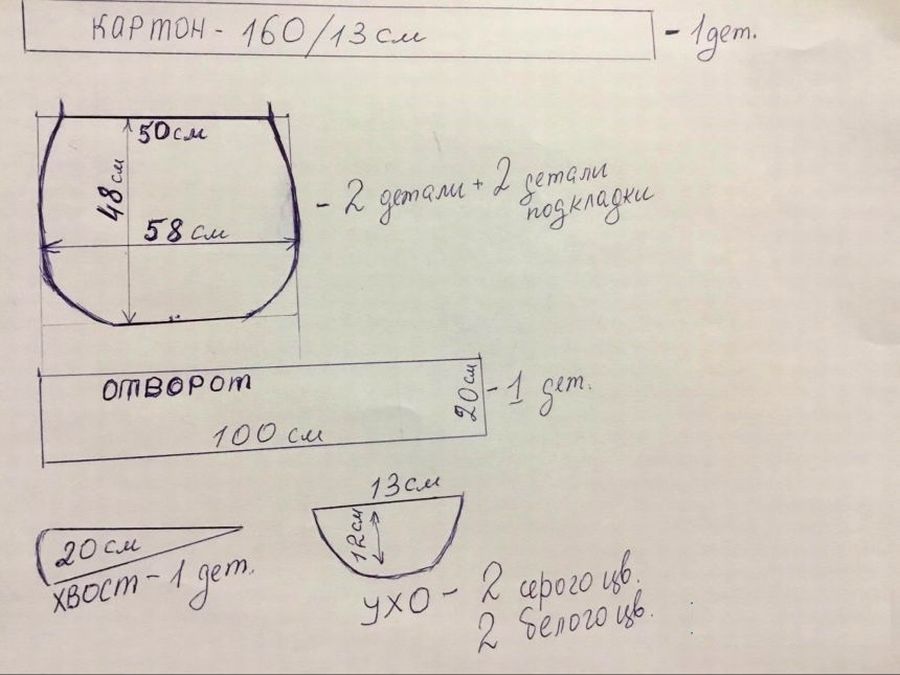 КАРТОН - 160/13 см
- 1 дет.
50 см
48 см
58 см
- 2 детали + 2 детали
подкладки
ОТВОРОТ
100 см
20 см
- 1 дет.
20 см
ХВОСТ - 1 дет.
13 см
12 см
УХО - 2 серого цв.
2 белого цв.